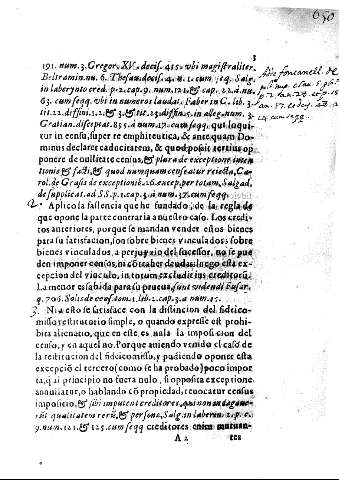 3
191. num. 3. Gregor. XV. decis. 415. vbi magistraliter
Beltramin. nu. 6. Thesau. decis. 4. n. 1. cum seq. Salg.
in laberynto cred. p. 2. cap. 9. num. 121. & cap. 22. à nu.
63. cum seqq. vbi in numeros laudat. Faber in C. lib. 3
tit. 22. diffini. 1. 2. & 3. & tit. 23. diffin. 5. in alleg. num. 3
Gratian. disceptat. 855. à num. 17. cum seqq. qui loqui-
tur in censu, super re emphiteutica, & ante quam Do-
minus declaret caducitatem, & quod possit tertius op-
ponere de nullitate census, & plura de exceptione inten
tionis & facti, & quod numquam censeatur reiecta, Ca-
rol. de Grasis de exceptionib. 26. except. per totam, Salgad.
de suplicat. ad SS. p. 1. cap. 3. à num. 37. cum seqq.
2. Aplico la fallencia que he fundado, de la regla de
que opone la parte contraria a nuestro caso. Los credi-
tos anteriores, porque se mandan vender estos bienes
para su satisfacion, son sobre bienes vinculados: sobre
bienes vinculados, a perjuyzio del sucessor, no se pue
den imponer censos, ni caber deudas: luego esta ex-
cepcion del vinculo, in totum excludit ius creditorũ.
La menor es sabida para su prueua, sunt videndi Fusar.
q. 706. Solis de cens. tom. 1. lib. 2. cap. 3. à num. 15.
3. Ni a esto se satisface con la distincion del fideico-
misso restitutorio simple, o quando expresse est prohi
bita alienatio, que en este es nula la imposicion del
censo, y en aquel no. Porque auiendo venido el caso de
la restitucion del fideicomisso, y pudiendo oponer esta
excepciõ el tercero (como se ha probado) poco impor
ta, q̃ al principio no fuera nulo, si opposita exceptione
annullatur, o hablando cõ propiedad, reuocatur census
impositio, & sibi imputent creditores, qui non indagaue-
rũt qualitatem rerũ, & personæ, Salg. in laberin. 2. p. c.
9. num. 121. & 125. cum seqq. creditores enim mutuan-
A 2
tes